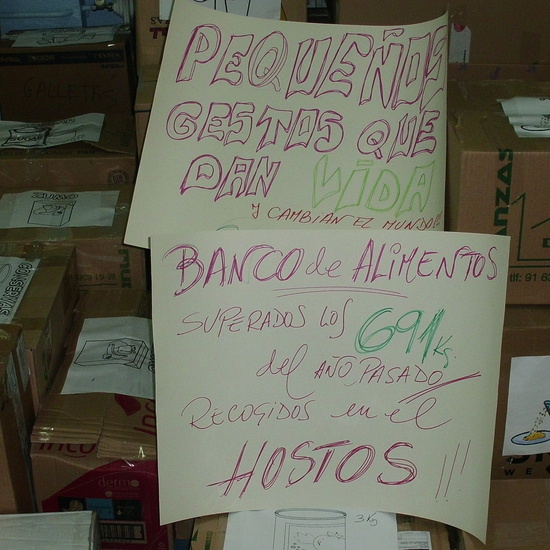 PEQUEÑOS
GESTOS QUE
DAN VIDA
Y CAMBIAN EL MUNDO!!
BANCO de ALIMENTOS
SUPERADOS LOS 691 Kg.
del AÑO PASADO
RECOGIDOS en el
HOSTOS!!!
GALLETAS
ZUMO
CONSERVAS
ANZAS
tlf: 91 6
dermo
3 Kg
WE